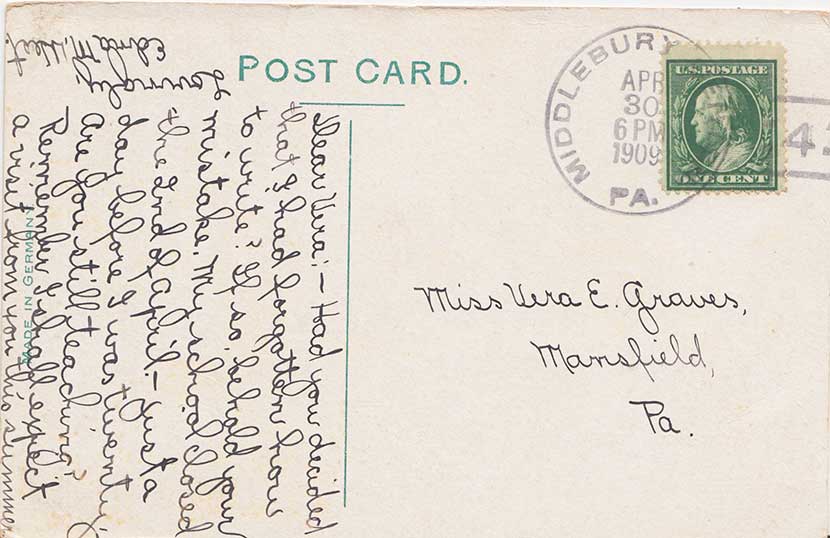 POST CARD.
MIDDLEBURY
APR
30
6 PM
1909
PA.
4.
U.S. POSTAGE
ONE CENT
Miss Vera E. Graves,
Mansfield,
Pa.
Dear Vera:— Had you decided
that I had forgotten how
to write? If so, behold your
mistake. My school closed
the 2nd of April.— Just a
day before I was twenty.
Are you still teaching?
Remember I shall expect
a visit from you this summer
Lovingly,
Edna M.
MADE IN GERMANY